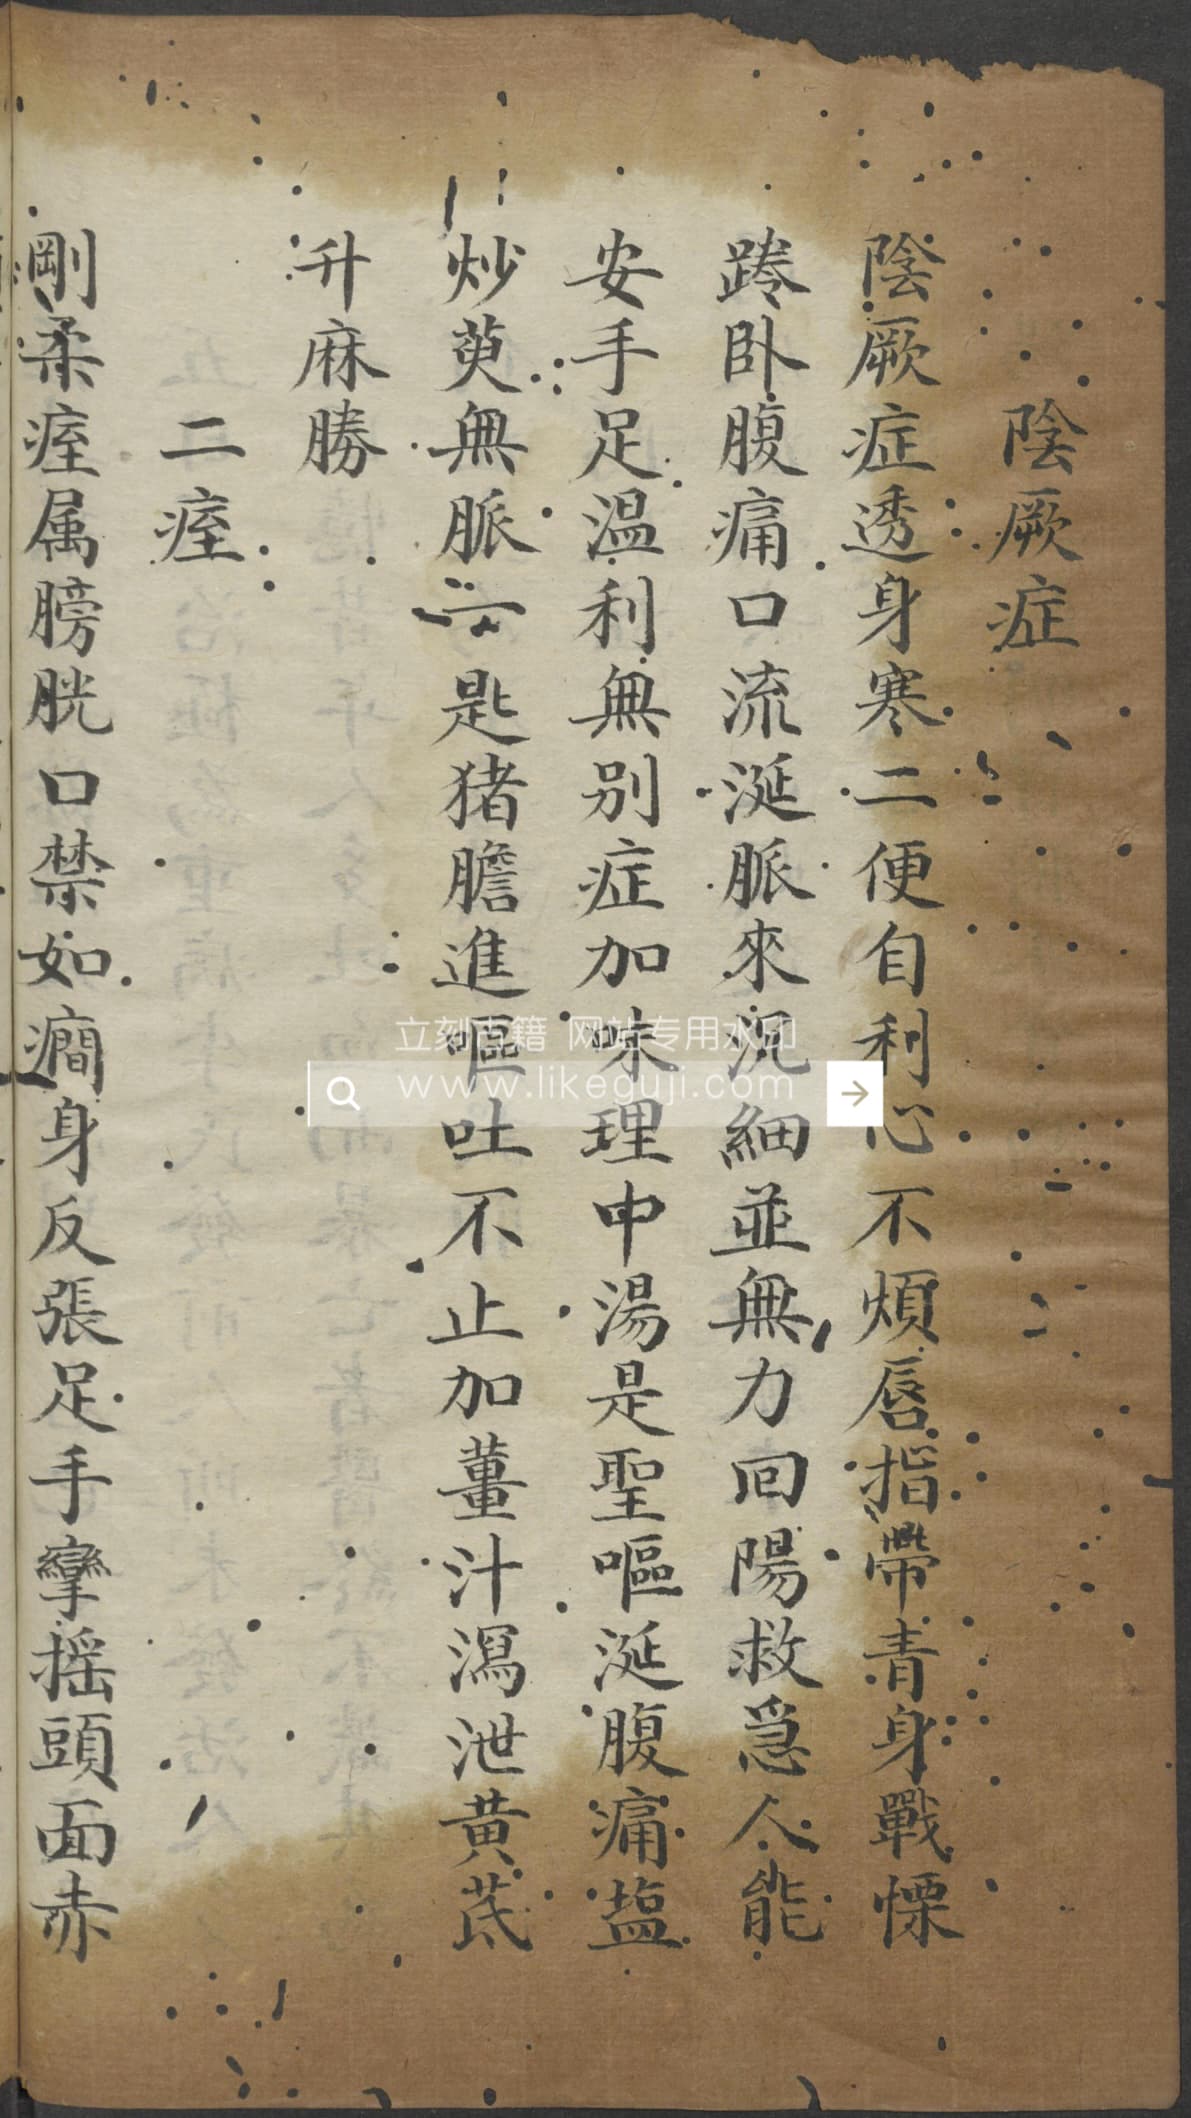 陰厥症
陰厥症透身寒二便自利心不煩唇指帶青身戰慄
踡卧腹痛口流涎脈來沉細並無力回陽救急人能
安手足温利無别症加味理中湯是聖嘔涎腹痛塩
炒萸無脈一匙猪膽進嘔吐不止加薑汁瀉泄黄芪
升麻勝
二痓
剛柔痓属膀胱口禁如癇身反張足手攣摇頭面赤
立刻古籍 网站专用水印
www.likeguji.com